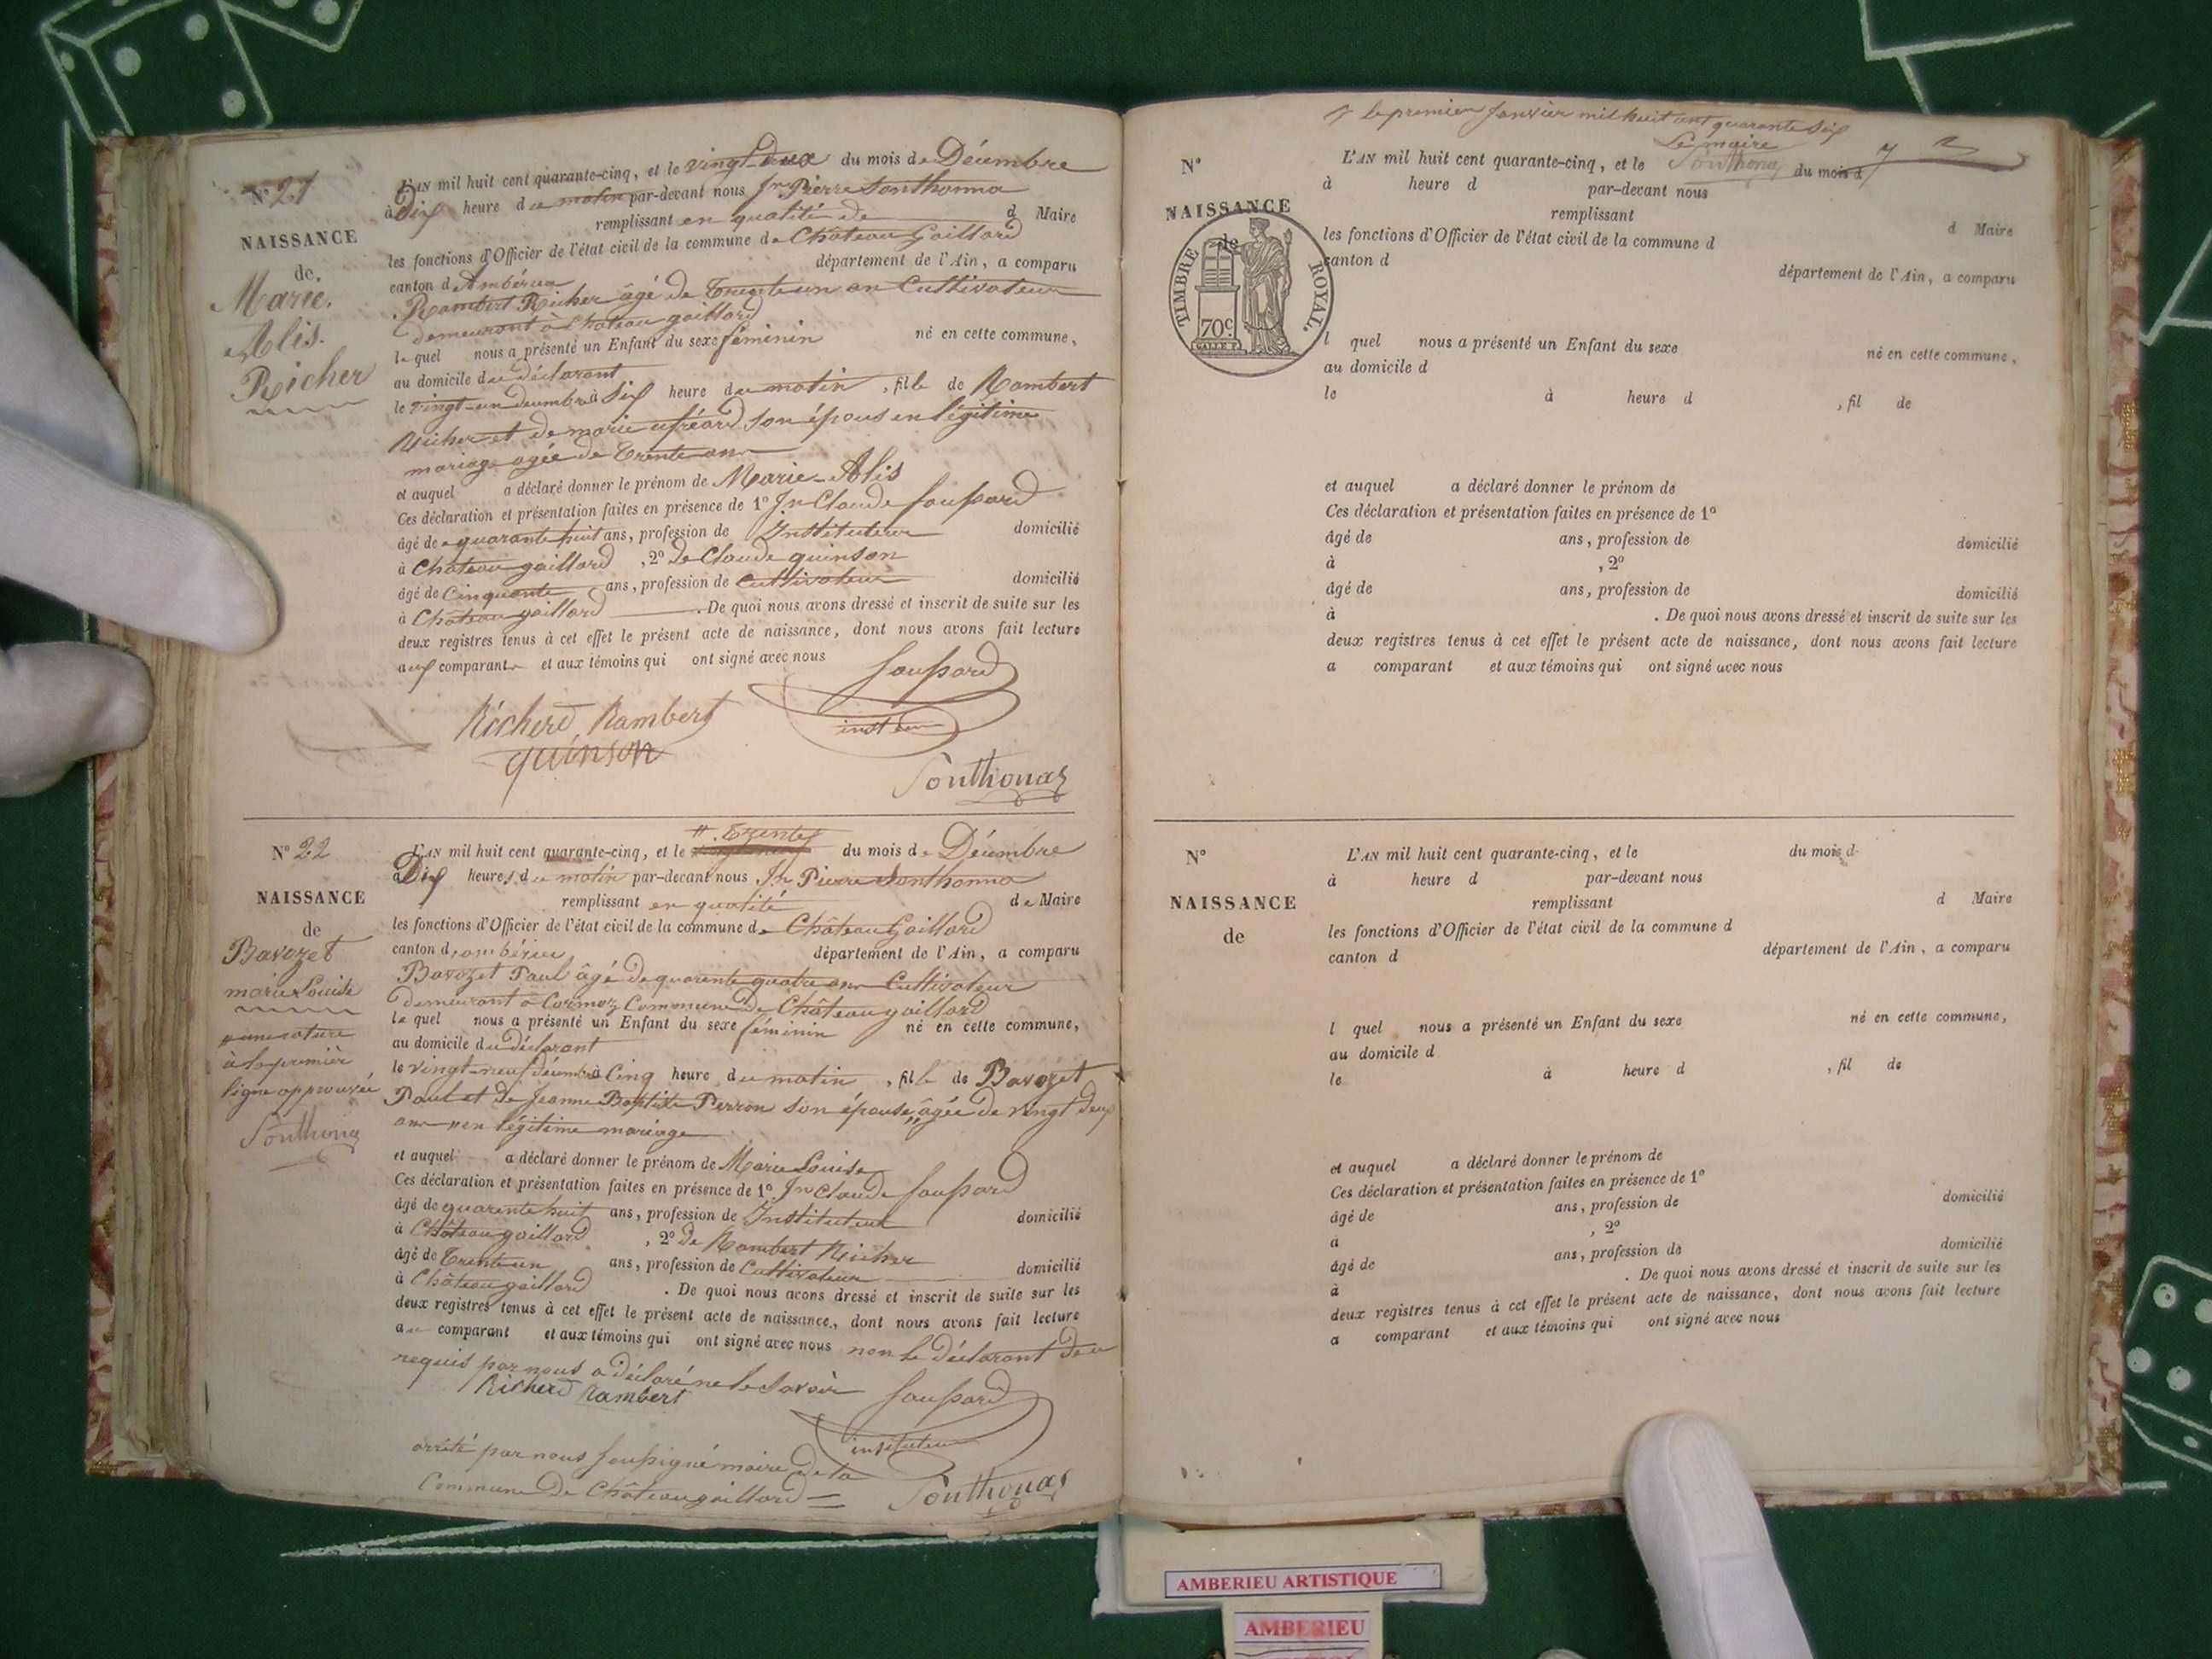 N° 21
NAISSANCE
de
Marie
Alis
Richer
L'AN mil huit cent quarante-cinq, et le vingt-deux du mois de Décembre
à Dix heure du matin par-devant nous Jn Pierre Sonthonna
remplissant en qualité de d Maire
les fonctions d'Officier de l'état civil de la commune de Château Gaillard
canton d'Ambérieu département de l'Ain, a comparu
Rambert Richer âgé de Trente un an Cultivateur
demeurant à Chateau gaillard
lequel nous a présenté un Enfant du sexe féminin né en cette commune,
au domicile du déclarant
le vingt-un décembre à Six heure du matin, fille de Rambert
Richer et de marie son épouse en légitime
mariage agée de Trente ans
et auquel a déclaré donner le prénom de Marie-Alis
Ces déclaration et présentation faites en présence de 1° Jn Claude
âgé de quarante huit ans, profession de Instituteur domicilié
à Château gaillard, 2° de Claude quinson
âgé de Cinquante ans, profession de Cultivateur domicilié
à Château gaillard. De quoi nous avons dressé et inscrit de suite sur les
deux registres tenus à cet effet le présent acte de naissance, dont nous avons fait lecture
aux comparants et aux témoins qui ont signé avec nous
Richerd Rambert
quinson
Sonthonas
N° 22
NAISSANCE
de
Bavozet
marie Louise
une rature
à la premièr
ligne approuvée
Sonthona
L'AN mil huit cent quarante-cinq, et le Trente du mois de Décembre
à Dix heures du matin par-devant nous Jn Pierre Sonthonna
remplissant en qualité de Maire
les fonctions d'Officier de l'état civil de la commune de Château Gaillard
canton d'ambérieu département de l'Ain, a comparu
Bavozet Paul âgé de quarente quatre ans Cultivateur
demeurant à Cormoz Commune de Château gaillard
lequel nous a présenté un Enfant du sexe féminin né en cette commune,
au domicile du déclarant
le vingt-neuf décembre à Cinq heure du matin, fille de Bavozet
Paul et de Jeanne Baptiste Perron son épouse, âgée de vingt deux
ans en légitime mariage
et auquel a déclaré donner le prénom de Marie Louise
Ces déclaration et présentation faites en présence de 1° Jn Claude
âgé de quarente huit ans, profession de Instituteur domicilié
à Château gaillard, 2° de Rambert Richer
âgé de Trente un ans, profession de Cultivateur domicilié
à Château gaillard. De quoi nous avons dressé et inscrit de suite sur les
deux registres tenus à cet effet le présent acte de naissance, dont nous avons fait lecture
au comparant et aux témoins qui ont signé avec nous non le déclarant de ce
requis par nous a déclaré ne le savoir
Richerd Rambert
instituteur
arrêté par nous soussigné maire de la
Commune de Château gaillard
Sonthonas
le premier Janvier mil huit cent quarante six
Le maire
Sonthonas
N°
NAISSANCE
de
TIMBRE ROYAL.
70c.
L'AN mil huit cent quarante-cinq, et le du mois d
à heure d par-devant nous
remplissant d Maire
les fonctions d'Officier de l'état civil de la commune d
canton d département de l'Ain, a comparu
l quel nous a présenté un Enfant du sexe né en cette commune,
au domicile d
le à heure d , fil de
et auquel a déclaré donner le prénom de
Ces déclaration et présentation faites en présence de 1°
âgé de ans, profession de domicilié
à , 2°
âgé de ans, profession de domicilié
à . De quoi nous avons dressé et inscrit de suite sur les
deux registres tenus à cet effet le présent acte de naissance, dont nous avons fait lecture
a comparant et aux témoins qui ont signé avec nous
N°
NAISSANCE
de
L'AN mil huit cent quarante-cinq, et le du mois d
à heure d par-devant nous
remplissant d Maire
les fonctions d'Officier de l'état civil de la commune d
canton d département de l'Ain, a comparu
l quel nous a présenté un Enfant du sexe né en cette commune,
au domicile d
le à heure d , fil de
et auquel a déclaré donner le prénom de
Ces déclaration et présentation faites en présence de 1°
âgé de ans, profession de domicilié
à , 2°
âgé de ans, profession de domicilié
à . De quoi nous avons dressé et inscrit de suite sur les
deux registres tenus à cet effet le présent acte de naissance, dont nous avons fait lecture
a comparant et aux témoins qui ont signé avec nous
AMBERIEU ARTISTIQUE
AMBERIEU